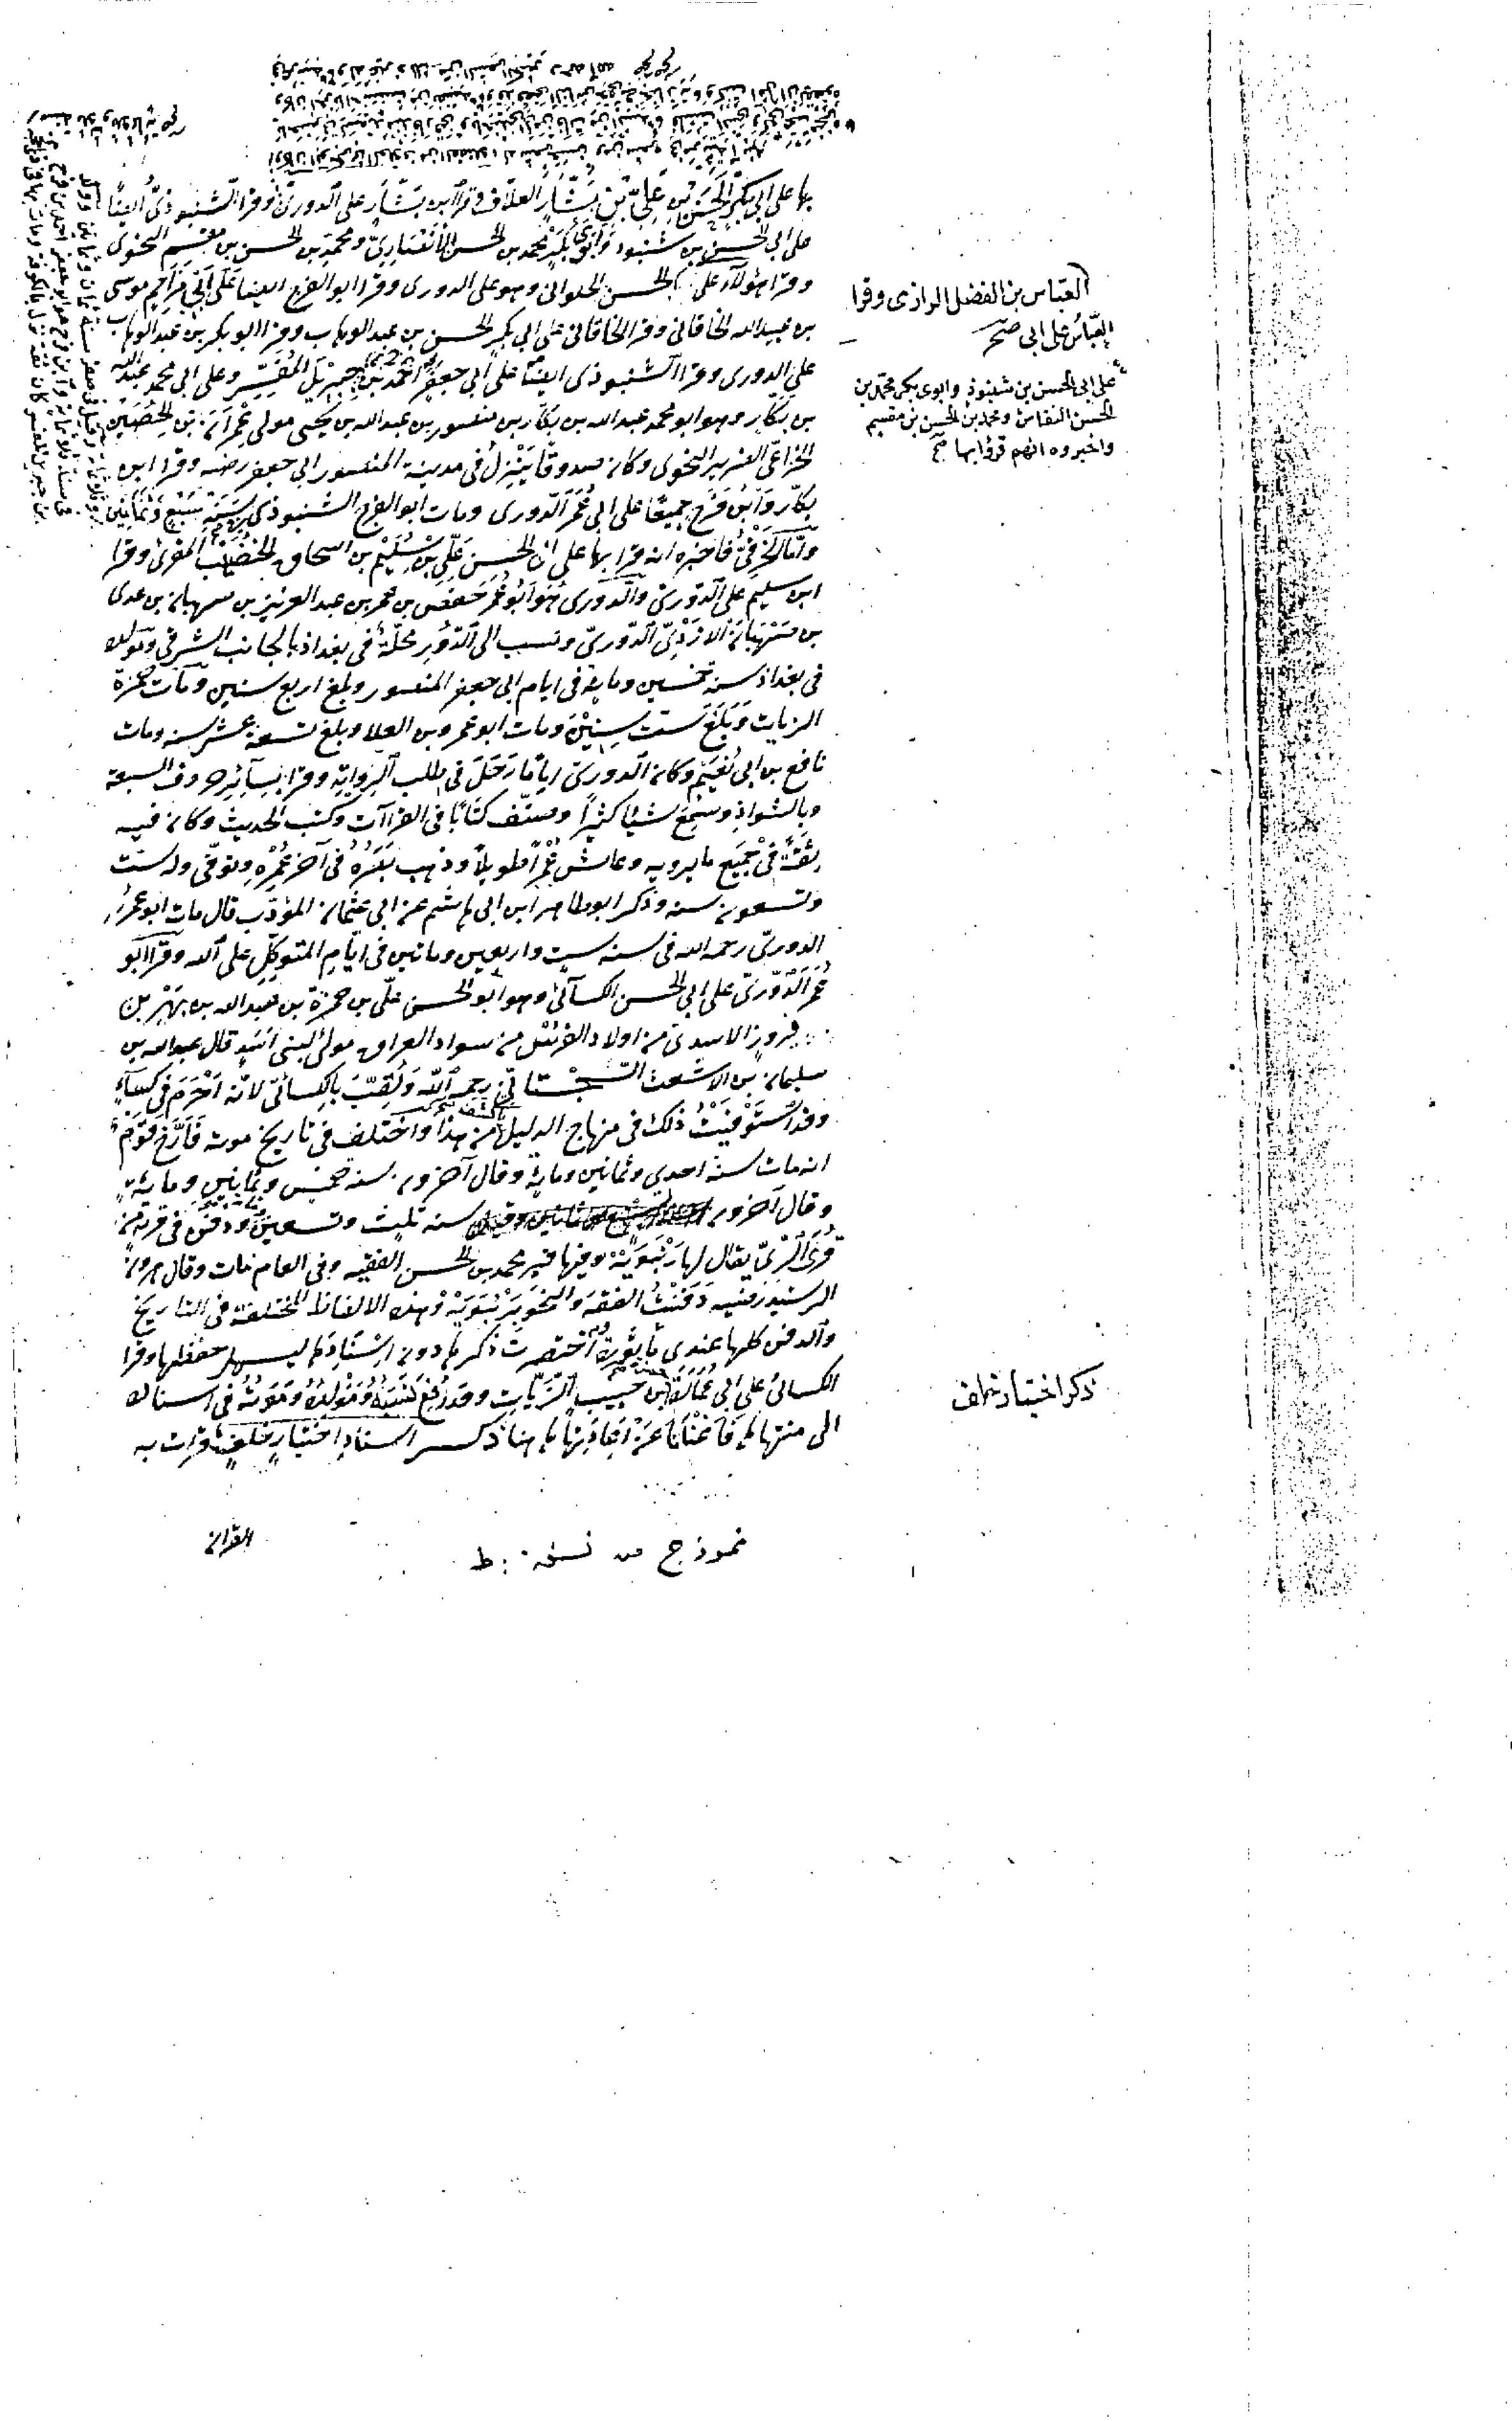 بها على ابى بكر الحسن بن على بن بشار العلاف وقرا ابن بشار على الدورى وقرا الشنبوذى ايضا
على ابى الحسن بن شنبوذ وابوى بكر محمد بن الحسن الانصارى ومحمد بن الحسن بن مقسم النحوى
وقرا هؤلاء على الحسن الحلوانى وهو على الدورى وقرا ابو الفرج ايضا على ابى مزاحم موسى
بن عبيد الله الخاقانى وقرا الخاقانى على ابى بكر الحسن بن عبد الوهاب وقرا ابو بكر بن عبد الوهاب
على الدورى وقرا الشنبوذى ايضا على ابى جعفر احمد بن جبريل المفسر وعلى ابى محمد عبد الله
بن بكار وهو ابو محمد عبد الله بن بكار بن منصور بن عبد الله بن يحيى مولى عمران بن الحصين
الخزاعى الضرير النحوى وكان صدوقا ينزل فى مدينة المنصور ابى جعفر رضه وقرا ابن
بكار وابن فرح جميعا على ابى عمر الدورى ومات ابو الفرج الشنبوذى سنة سبع وثمانين
واما فاخبره انه قرا بها على ابى الحسن على بن سليم بن اسحاق الخضيب المقرئ وقرا
ابن سليم على الدورى والدورى هو ابو عمر حفص بن عمر بن عبد العزيز بن صهبان بن عدى
بن صهبان الازدى الدورى ونسب الى الدور محلة فى بغداذ بالجانب الشرقى ومولده
فى بغداذ سنة خمسين وماية فى ايام ابى جعفر المنصور وبلغ اربع سنين ومات حمزة
الزيات وبلغ ست سنين ومات ابو عمرو بن العلا وبلغ تسعة عشر سنه ومات
نافع بن ابى نعيم وكان الدورى اياما رحل فى طلب الرواية وقرا بسائر حروف السبعة
وبالشواذ وسمع شيا كثيرا وصنف كتابا فى القراآت وكتب الحديث وكان فيه
ثقة فى جميع ما يرويه وعاش عمرا طويلا وذهب بصره فى آخر عمره وتوفى وله ست
وتسعون سنه وذكر ابو طاهر ابن ابى هاشم عن ابى عثمان المؤدب قال مات ابو عمر
الدورى رحمه الله فى سنه ست واربعين وماتين فى ايام المتوكل على الله وقرا ابو
عمر الدورى على ابى الحسن الكسائى وهو ابو الحسن على بن حمزة بن عبد الله بن بهمن بن
فيروز الاسدى من اولاد الفرس من سواد العراق مولى لبنى اسد قال عبد الله بن
سليمان بن الاشعث السجستانى رحمه الله ولقب بالكسائى لانه احرم فى كساء
وقد استوفيت ذلك فى منهاج الدليل من هذا واختلف فى تاريخ موته فارخ قوم
انه مات سنة احدى وثمانين وماية وقال آخرون سنه خمس وثمانين وماية
وقال آخرون سنه ثلث وتسعين ودفن فى قرية من
قرى الرى يقال لها رنبوية وفيها قبر محمد بن الحسن الفقيه وفى العام مات وقال هرون
الرشيد رضيه دفنت الفقه والنحو برنبوية وهذه الالفاظ المختلفة فى التاريخ
والدفن كلها عندى ماثورة اختصرت ذكرها دون اسنادها ليسهل حفظها وقرا
الكسائى على ابى عمارة بن حبيب الزيات وقد رفع نسبه ومولده وموته فى اسناده
الى منتهاه فاغنانا عن اعادتها ها هنا ذكر اسناد اختيار خلف قرات به
القران
نموذج من نسخة : ط
العباس بن الفضل الرازى وقرا
العباس على ابى صح
على ابى الحسن بن شنبوذ وابوى بكر محمد بن
الحسن النقاش ومحمد بن الحسن بن مقسم
واخبروه انهم قرؤا بها صح
ذكر اختيار خلف